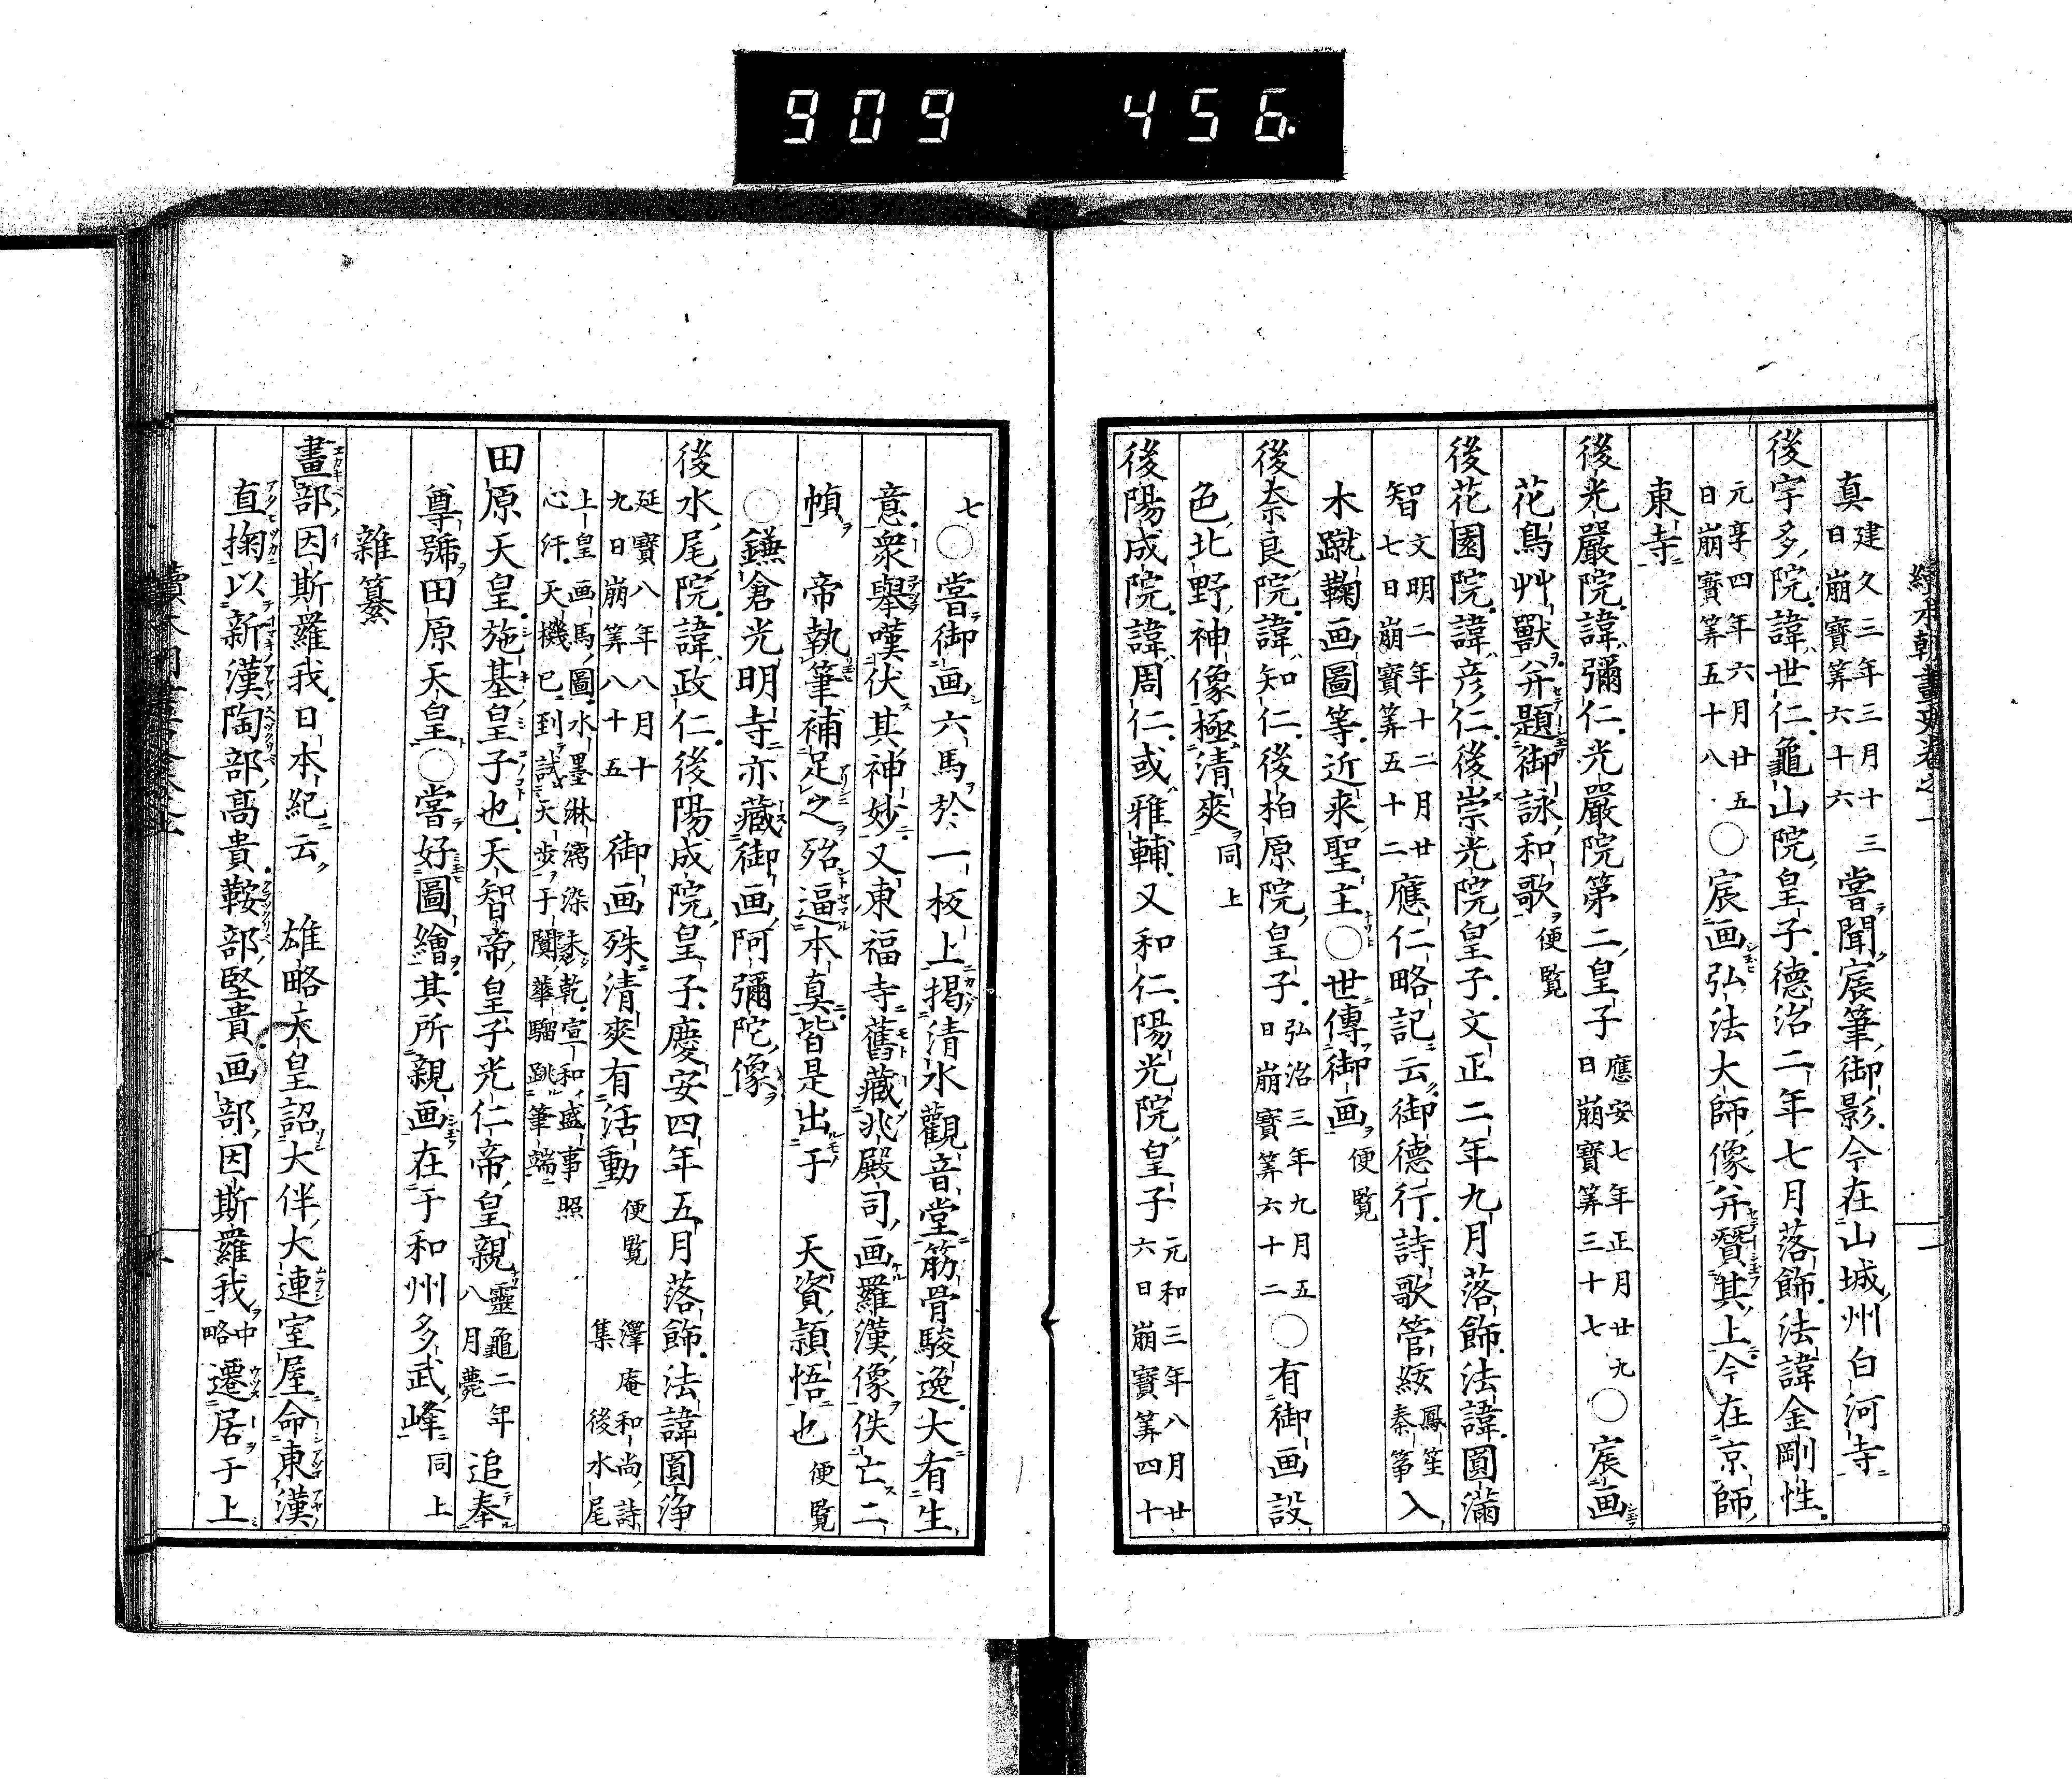 909 456
續本朝畫史卷之上
真 建久三年三月十三日崩寶筭六十六 嘗聞宸筆御影今在山城州白河寺
後宇多院諱世仁龜山院皇子德治二年七月落飾法諱金剛性
元享四年六月廿五日崩寶筭五十八 ○宸画弘法大師像并贊其上今在京師
東寺
後光嚴院諱彌仁光嚴院第二皇子 應安七年正月廿九日崩寶筭三十七 ○宸画
花鳥艸獸并題御詠和歌 便覧
後花園院諱彦仁後崇光院皇子文正二年九月落飾法諱圓滿
智 文明二年十二月廿七日崩寶筭五十二 應仁略記云御德行詩歌管綏 鳳笙秦箏 入
木蹴鞠画圖等近来聖主○世傳御画 便覧
後奈良院諱知仁後柏原院皇子 弘治三年九月五日崩寶筭六十二 ○有御画設
色北野神像極清爽 同上
後陽成院諱周仁或雅輔又和仁陽光院皇子 元和三年八月廿六日崩寶筭四十
七 ○嘗御画六馬於一板上掲清水觀音堂筋骨駿逸大有生
意衆舉嘆伏其神妙又東福寺舊藏兆殿司画羅漢像佚亡二
幀 帝執筆補足之殆逼本真皆是出于 天資頴悟也 便覧
○鎌倉光明寺亦藏御画阿彌陀像
後水尾院諱政仁後陽成院皇子慶安四年五月落飾法諱圓浄
延寶八年八月十九日崩筭八十五 御画殊清爽有活動 便覧 澤庵和尚詩集 後水尾
上皇画馬圖水墨淋漓染未乾宣和盛事照
心汗天機已到試天歩于闐華騮跳筆端
田原天皇施基皇子也天智帝皇子光仁帝皇親 靈龜二年八月薨 追奉
尊號田原天皇○嘗好圖繪其所親画在于和州多武峰 同上
雜纂
畫部因斯羅我日本紀云 雄略天皇詔大伴大連室屋命東漢
直掬以新漢陶部高貴鞍部堅貴画部因斯羅我 中略 遷居于上